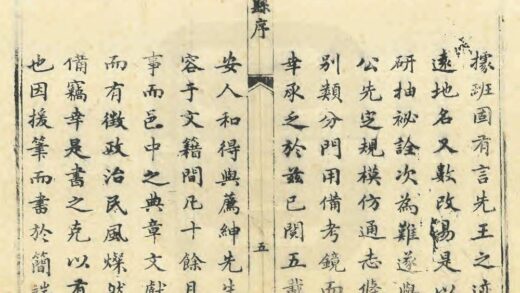 據班固有言先王之迹
遠地名又數改易是以
研抽祕詮次為難遂與
公先定規模仿通志條
別類分門用備考鏡而
幸承乏於兹已閱五載
縣序
五
安人和得與薦紳先生
容于文籍間凡十餘月
事而邑中之典章文獻
而有徵政治民風燦然
備竊幸是書之克以有
也因援筆而書於簡端